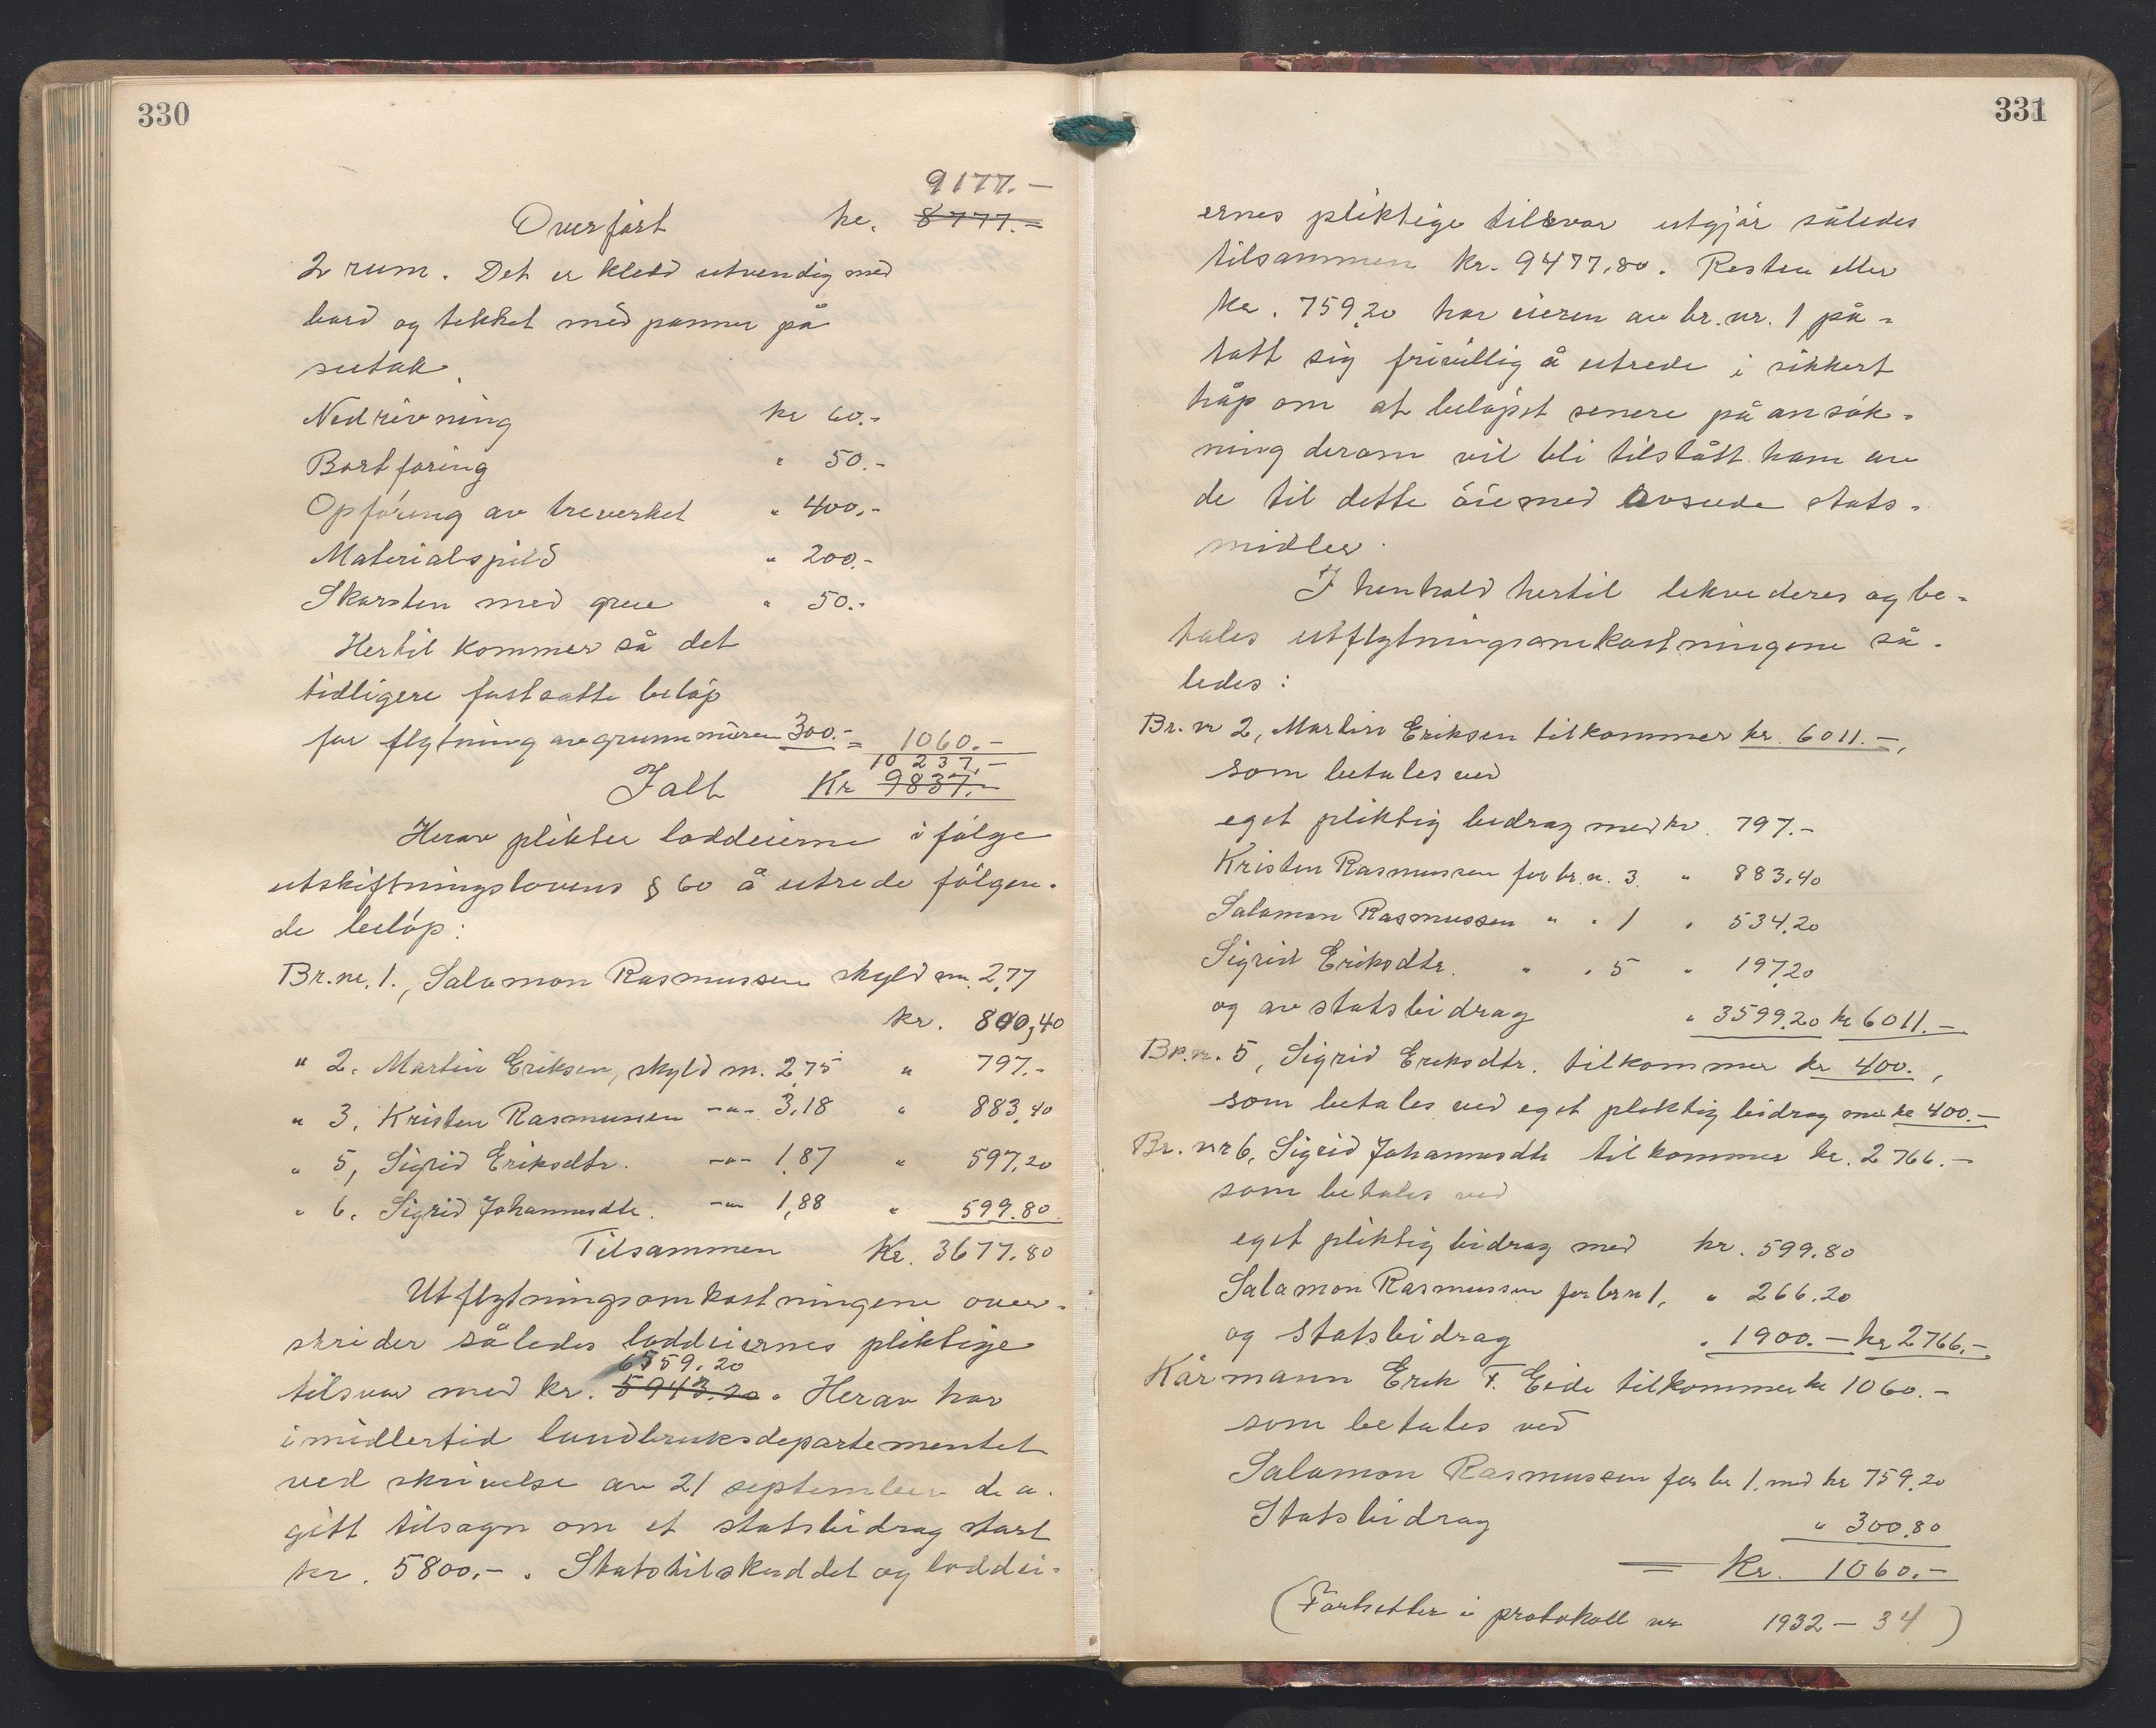 330
9177.-
Overført kr. 8777.-
2 rum. Det er kledd utvendig med
bord og tekket med panner på
sutak.
Nedrivning kr 60.-
Bortføring " 50.-
Opføring av treverket " 400.-
Materialspild " 200.-
Skorsten med grue " 50.-
Hertil kommer så det
tidligere fastsatte beløp
for flytning av grunnmuren 300.- = 1060.-
10237.-
Ialt Kr 9837.-
Herav plikter loddeierne i følge
utskiftningslovens § 60 å utrede følgen-
de beløp:
Br.nr. 1., Salamon Rasmussen skyld m. 2,77
kr. 800,40
" 2. Martin Eriksen, skyld m. 2,75 " 797.-
" 3. Kristen Rasmussen -"- 3,18 " 883,40
" 5, Sigrid Eriksdtr. -"- 1,87 " 597,20
" 6. Sigrid Johannesdtr. -"- 1,88 " 599.80
Tilsammen Kr. 3677.80
Utflytningsomkostningene over-
skrider således loddeiernes pliktige
6559.20
tilsvar med kr. 5943.20. Herav har
imidlertid landbruksdepartementet
ved skrivelse av 21 september d.a.
gitt tilsagn om et statsbidrag stort
kr. 5800.-. Statstilskuddet og loddei-
331
ernes pliktige tilsvar utgjør således
tilsammen kr. 9477,80. Resten eller
kr. 759,20 har eieren av br.nr. 1 på-
tatt sig frivillig å utrede i sikkert
håp om at beløpet senere på ansøk-
ning derom vil bli tilstått ham av
de til dette øiemed avsedde stats-
midler.
I henhold hertil lekvideres og be-
tales utflytningsomkostningene så-
ledes:
Br.nr 2, Martin Eriksen tilkommer kr. 6011.-,
som betales ved
eget pliktig bidrag med kr. 797.-
Kristen Rasmussen for br.n. 3. " 883,40
Salamon Rasmussen " " 1 " 534,20
Sigrid Eriksdtr. " " 5 " 197,20
og av statsbidrag " 3599,20 kr 6011.-
Br.nr. 5, Sigrid Eriksdtr. tilkommer kr 400.,
som betales ved eget pliktig bidrag med kr 400.-
Br. nr 6, Sigrid Johannesdtr tilkommer kr. 2766.-
som betales ved
eget pliktig bidrag med kr. 599.80
Salamon Rasmussen for br.n 1, " 266.20
og statsbidrag " 1900.- kr 2766.-
Kårmann Erik T. Eide tilkommer kr 1060.-
som betales ved
Salamon Rasmussen for br 1. med kr 759,20
Statsbidrag " 300,80
= Kr. 1060.-
(Fortsetter i protokoll nr 1932-34)